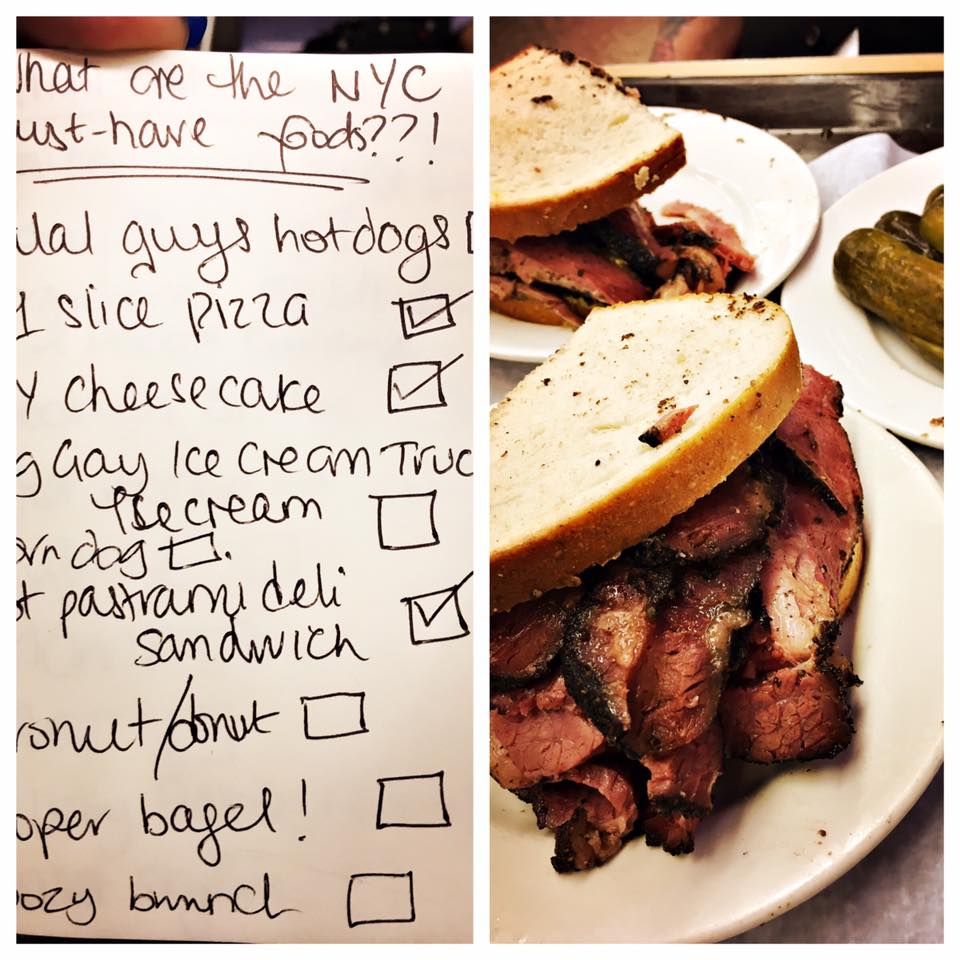 hat are the NYC
ust-have foods??!
lal guys hotdogs
1 slice pizza
Y cheesecake
g Gay Ice Cream Truc
Icecream
orn dog
t pastrami deli
sandwich
ronut/donut
oper bagel!
oozy brunch